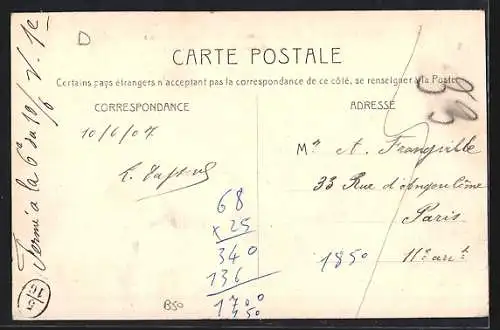 D
CARTE POSTALE
Certains pays étrangers n'acceptant pas la correspondance de ce côté, se renseigner à la Poste
CORRESPONDANCE
ADRESSE
10/6/07
Mr A. Frangville
33 Rue d'Angoulême
Paris
11e arrt
68
x 25
340
136
1700
1850
B50
à la 6e du 10/6